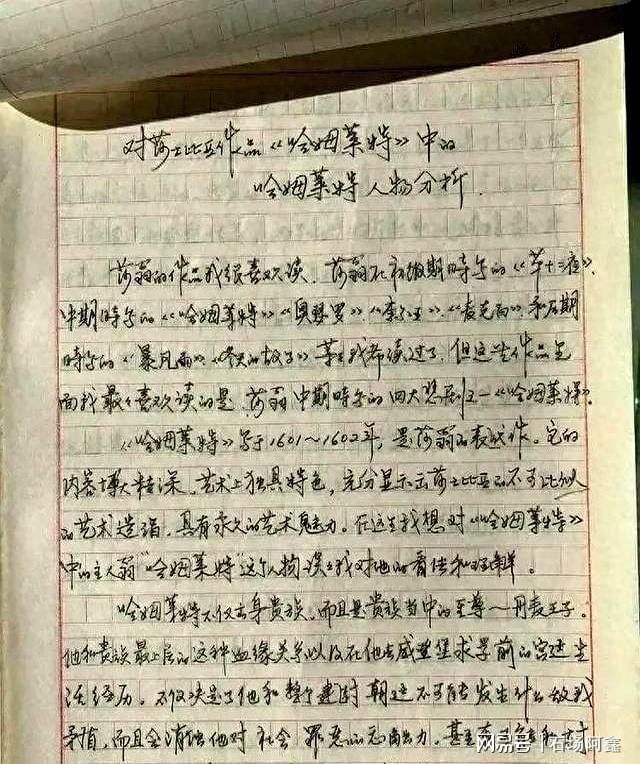 对莎士比亚作品《哈姆莱特》中的
哈姆莱特人物分析.
莎翁的作品我很喜欢读.莎翁在初期时写的《第十二夜》.
中期时写的《哈姆莱特》《奥瑟罗》《李尔王》.《麦克白》和后期
时写的《暴风雨》、《冬天的故事》等等我都读过了.但这些作品里
面我最喜欢读的是.莎翁中期时写的四大悲剧之一《哈姆莱特》.
《哈姆莱特》写于1601～1602年,是莎翁的代表作。它的
内容博大精深.艺术上独具特色,充分显示出莎士比亚的不可比拟
的艺术造诣.具有永久的艺术魅力.在这里我想对《哈姆莱特》
中的主人翁"哈姆莱特"这个人物谈谈我对他的看法和理解。
哈姆莱特不仅出身贵族.而且是贵族当中的至尊～丹麦王子.
他和贵族最上层的这种血缘关系以及在他去威登堡求学前的宫廷生
活经历.不仅决定了他和整个建封朝廷不可能发生什么敌我
矛盾,而且会消蚀他对社会罪恶的
网易号 | 石场阿鑫